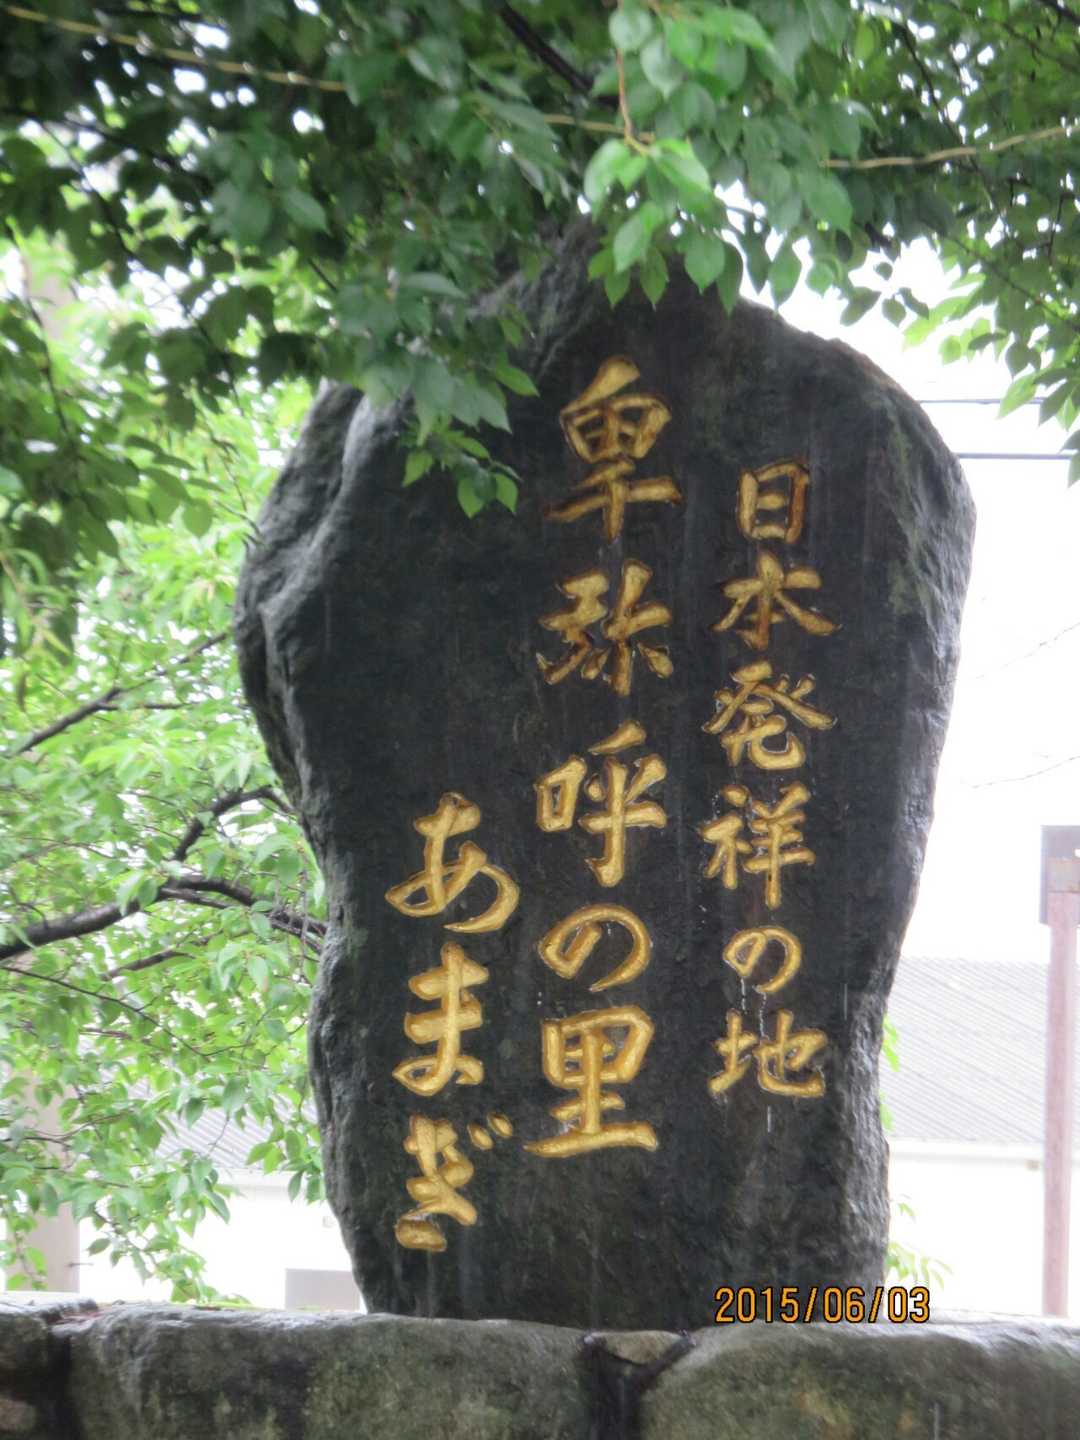 日本発祥の地
卑弥呼の里
あまぎ
2015/06/03